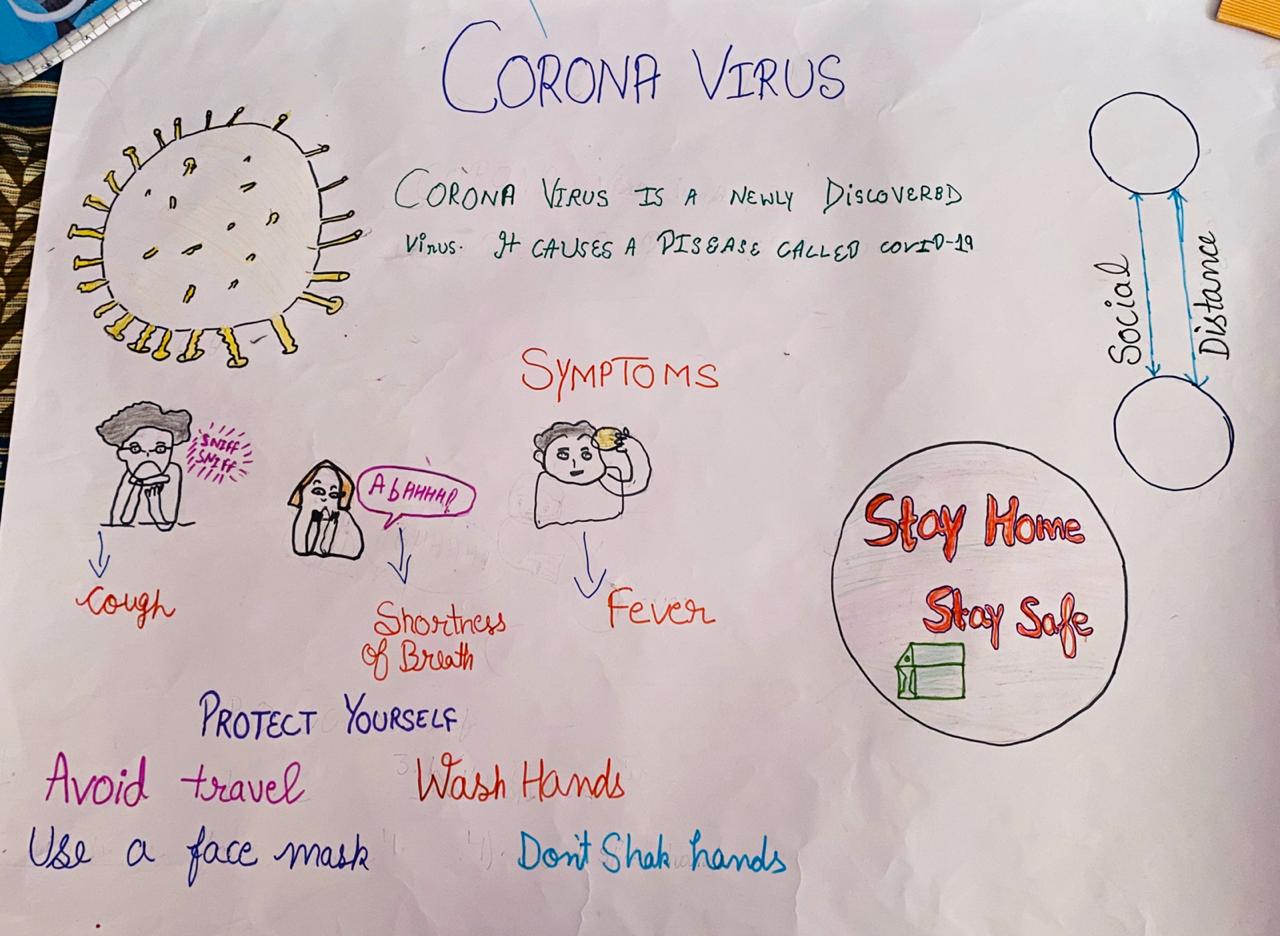 CORONA VIRUS
CORONA VIRUS IS A NEWLY DISCOVERED
Virus. It CAUSES A DISEASE CALLED COVID-19
Social
Distance
SYMPTOMS
SNIFF
SNIFF
AbAHHHH
Cough
Shortness
of Breath
Fever
Stay Home
Stay Safe
PROTECT YOURSELF
Avoid travel
Wash Hands
Use a face mask
Don't Shak hands